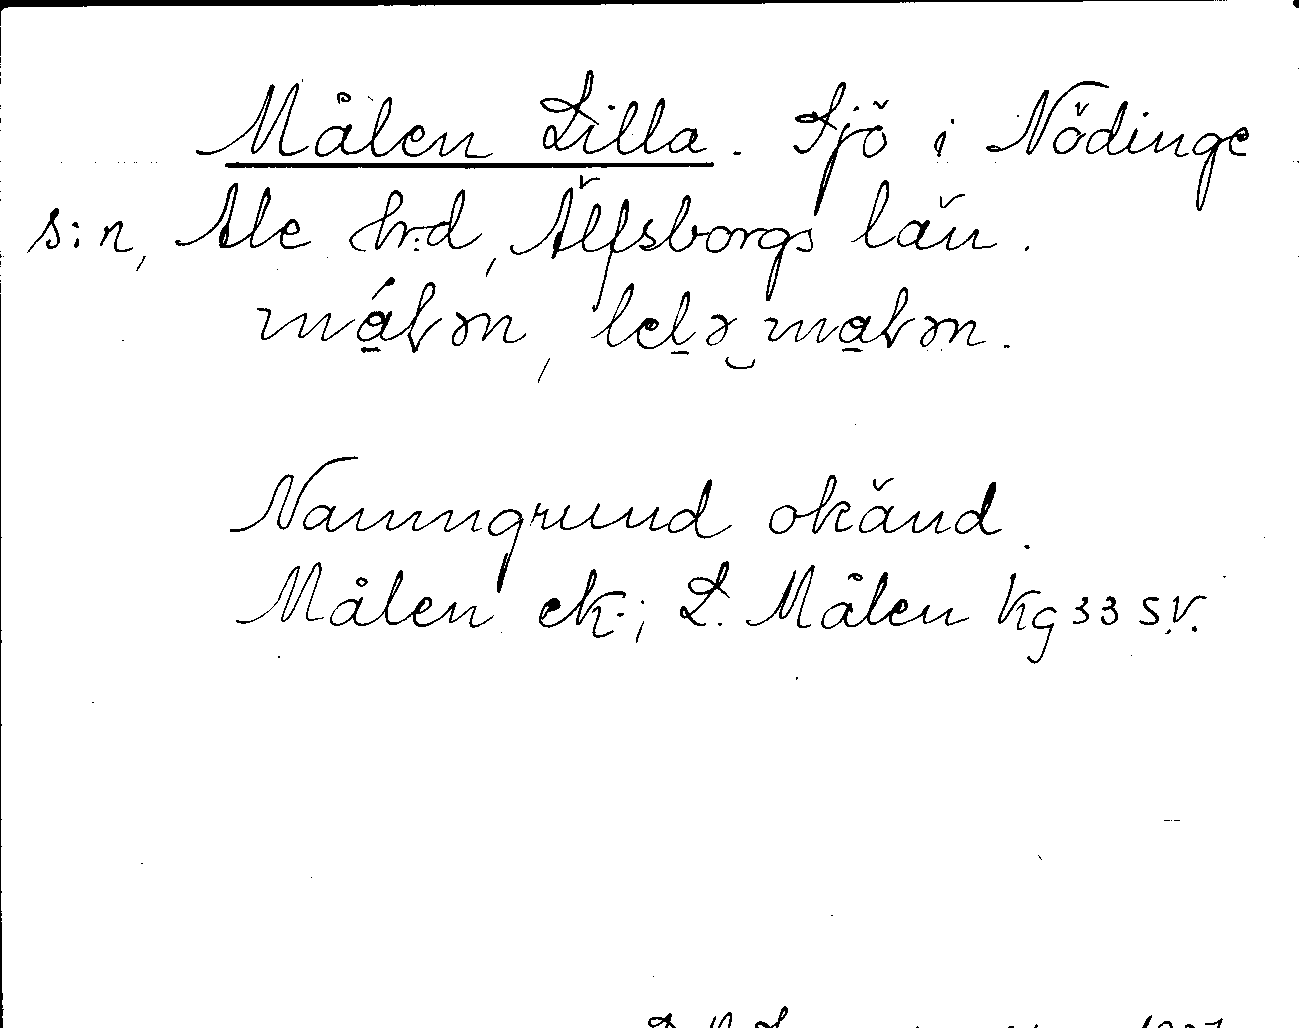 Målen Lilla. Sjö i Nödinge
s:n, Ale hr:d, Älfsborgs län.
má̱ɫən, lel̠ə‿ma̱ɫən.
Namngrund okänd.
Målen ek.; L. Målen Kg 33 S.V.